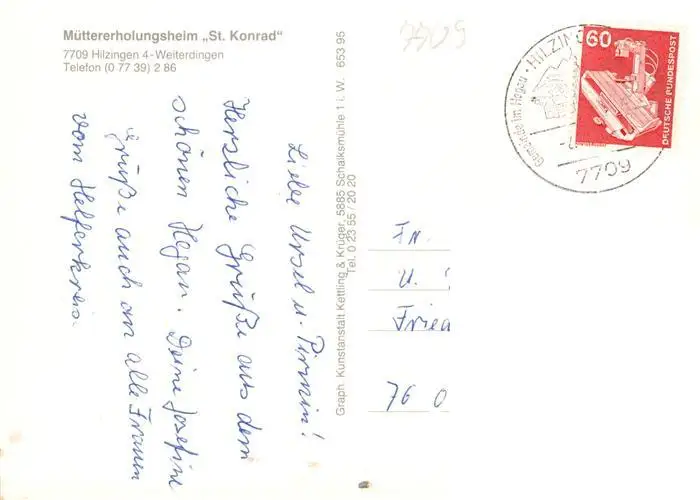 Müttererholungsheim „St. Konrad"
7709 Hilzingen 4-Weiterdingen
Telefon (0 77 39) 2 86
Liebe Ursel u. Pirmin!
Herzliche Grüße aus dem
schönen Hegau. Deine Josefine
Grüße auch an alle Frauen
vom Helferkreis.
Graph. Kunstanstalt Kettling & Krüger, 5885 Schalksmühle 1 i. W. 653 95
Tel. 0 23 55 / 20 20
7709
Gemeinde im Hegau · HILZING
7709
60
DEUTSCHE BUNDESPOST
Fr.
u.
Frie
76 0